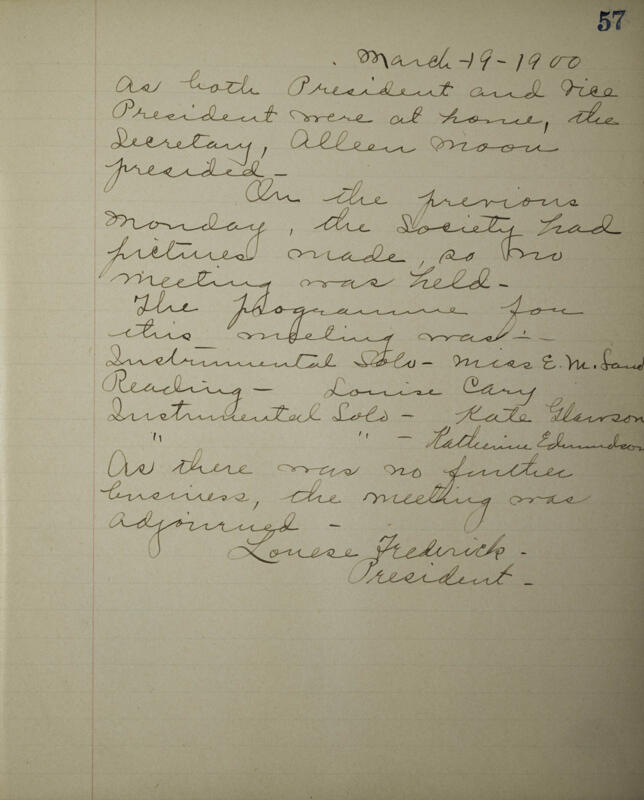 57
March-19-1900
As both President and Vice
President were at home, the
Secretary, Alleen Moon
presided-
On the previous
Monday, the Society had
pictures made, so no
meeting was held-
The programme for
this meeting was:-
Instrumental Solo- Miss E. M. Sand
Reading- Louise Cary
Instrumental Solo- Kate Glawson
" " - Katherine Edmundson
As there was no further
business, the meeting was
adjourned-
Louese Frederick-
President-